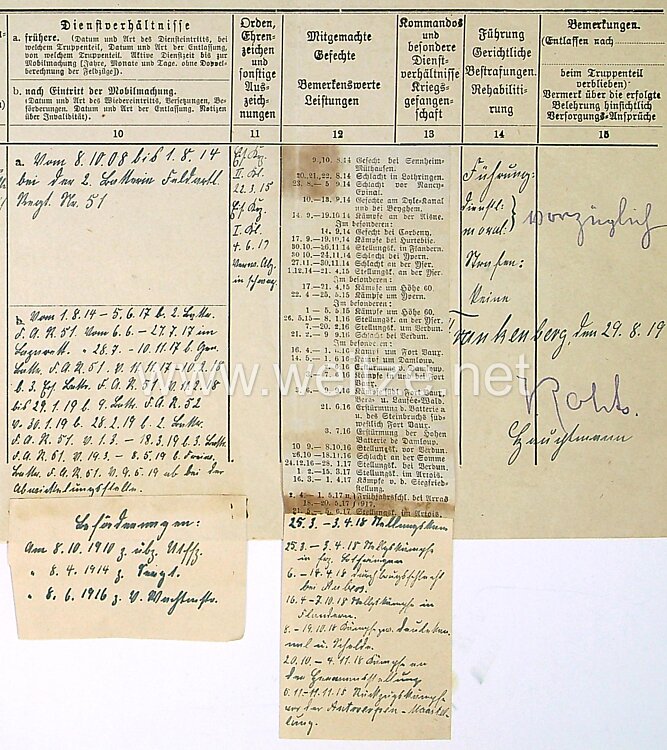 Dienstverhältnisse
a. frühere. (Datum und Art des Diensteintritts, bei
welchem Truppenteil, Datum und Art der Entlassung,
von welchem Truppenteil. Aktive Dienstzeit bis zur
Mobilmachung [Jahre, Monate und Tage, ohne Doppel-
berechnung der Feldzüge]).
b. nach Eintritt der Mobilmachung.
(Datum und Art des Wiedereintritts, Verletzungen, Be-
förderungen. Datum und Art der Entlassung. Notizen
über Invalidität).
10
a. Vom 8.10.08 bis 1.8.14
bei der 2. Batterie Feldartl.
Regt. Nr. 51
b. Vom 1.8.14 – 5.6.17 b. 2. Battr.
F.A.R. 51. Vom 6.6. – 27.7.17 im
Lazarett. 28.7. – 10.11.17 b. Gen.
Battr. F.A.R. 51. v. 11.11.17 – 10.2.18
b. 3. Ers. Battr. F.A.R. 51. v. 11.2.18
bis 29.1.19 b. 9. Battr. F.A.R. 52
v. 30.1.19 b. 28.2.19 b. 2. Battr.
F.A.R. 51. v. 1.3. – 18.3.19 b. 3. Battr.
F.A.R. 51. v. 19.3. – 8.5.19 b.
Battr. F.A.R. 51. v. 9.5.19 ab bei der
Abwickelungsstelle.
Beförderungen:
Am 8.10.1910 z. übz. Utffz.
" 8.4.1914 z. Sergt.
" 8.6.1916 z. V. Wachtmstr.
Orden,
Ehren-
zeichen
und
sonstige
Aus-
zeich-
nungen
11
II. Kl.
22.3.15
I. Kl.
4.6.17
Verw. Abz.
in schwarz
Mitgemachte
Gefechte
Bemerkenswerte
Leistungen
12
9.,10. 8.14 Gefecht bei Sennheim-
Mülhausen.
20.,21.,22. 8.14 Schlacht in Lothringen.
23. 8.— 5. 9.14 Schlacht vor Nancy-
Epinal.
10.—13. 9.14 Gefechte am Dyle-Kanal
und bei Boyghem.
14. 9.—19.10.14 Kämpfe an der Aisne.
Im besonderen:
14. 9.14 Gefecht bei Corbeny.
17. 9.—19.10.14 Kämpfe bei Hurtebise.
20.10.—16.11.14 Stellungsk. in Flandern.
30.10.—24.11.14 Schlacht bei Ypern.
27.11.—30.11.14 Schlacht an der Yser.
1.12.14—21. 4.15 Stellungsk. an der Yser.
Im besonderen:
17.—21. 4.15 Kämpfe um Höhe 60.
22. 4.—25. 5.15 Kämpfe um Ypern.
Im besonderen:
1.— 5. 5.15 Kämpfe um Höhe 60.
26. 5.15— 8. 1.16 Stellungsk. an der Yser.
7.—20. 2.16 Stellungsk. um Verdun.
21. 2.— 9. 9.16 Schlacht bei Verdun.
Im besonderen:
16. 4.— 1. 6.16 Kampf um Fort Vaux.
14. 5.— 1. 6.16 Kampf um Damloup.
Vaux- u. Laufée-Wald.
21. 6.16 Erstürmung d. Batterie a
u. des Steinbruchs süd-
westlich Fort Vaux.
3. 7.16 Erstürmung der Hohen
Batterie de Damloup.
10. 9.— 8.10.16 Stellungsk. vor Verdun.
26.10.—18.11.16 Schlacht an der Somme
24.12.16—28. 1.17 Stellungsk. bei Verdun.
1. 2.—15. 3.17 Stellungsk. im Artois.
16. 3.— 1. 4.17 Kämpfe v. d. Siegfried-
stellung.
2. 4.— 1. 5.17 u.) Frühjahrsschl. bei Arras
18.—20. 5.17 ) 1917.
21. 5.— 5. 6.17 Stellungsk. im Artois.
25.3. – 3.4.18 Stellungskämpfe
25.3. – 3.4.18 Stellgskämpfe
in frz. Lothringen
6. – 14.4.18 Durchbruchsschlacht
16.4 – 7.10.18 Stellgskämpfe in
Flandern.
8. – 19.10.18 Kämpfe
u. Schelde.
20.10. – 4.11.18 Kämpfe an
der Hermannstellung
5.11 – 11.11.18 Rückzugskämpfe
vor der Antwerpen – Maasstel-
lung.
Kommandos
und
besondere
Dienst-
verhältnisse
Kriegs-
gefangen-
schaft
13
Führung
Gerichtliche
Bestrafungen.
Rehabiliti-
rung
14
Führung:
dienstl.
moral. } vorzüglich
Strafen:
Keine
Bemerkungen.
(Entlassen nach
beim Truppenteil
verblieben)
Vermerk über die erfolgte
Belehrung hinsichtlich
Versorgungs-Ansprüche
15
Frankenberg, den 29.8.19
Hauptmann
www.weitze.net